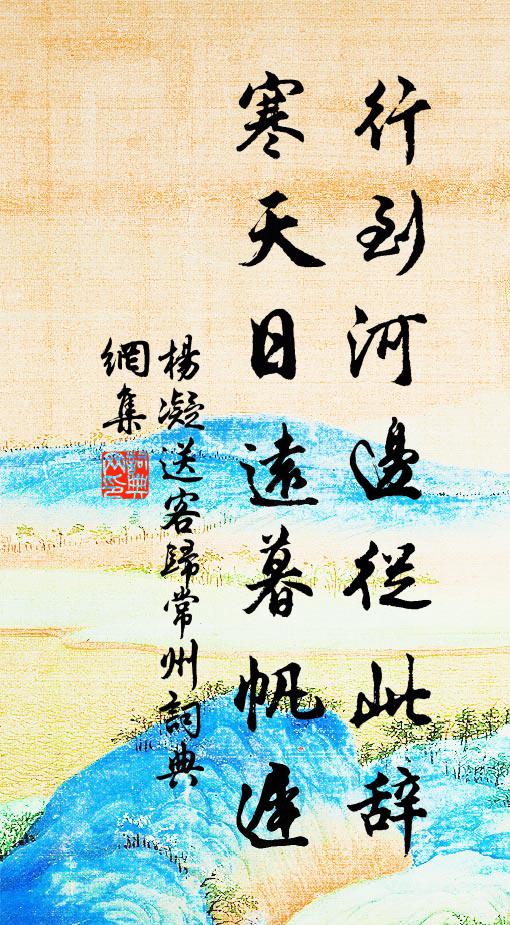 行到河邊從此辞
寒天日遠暮帆遲
楊凝送客歸常州詞典
網集